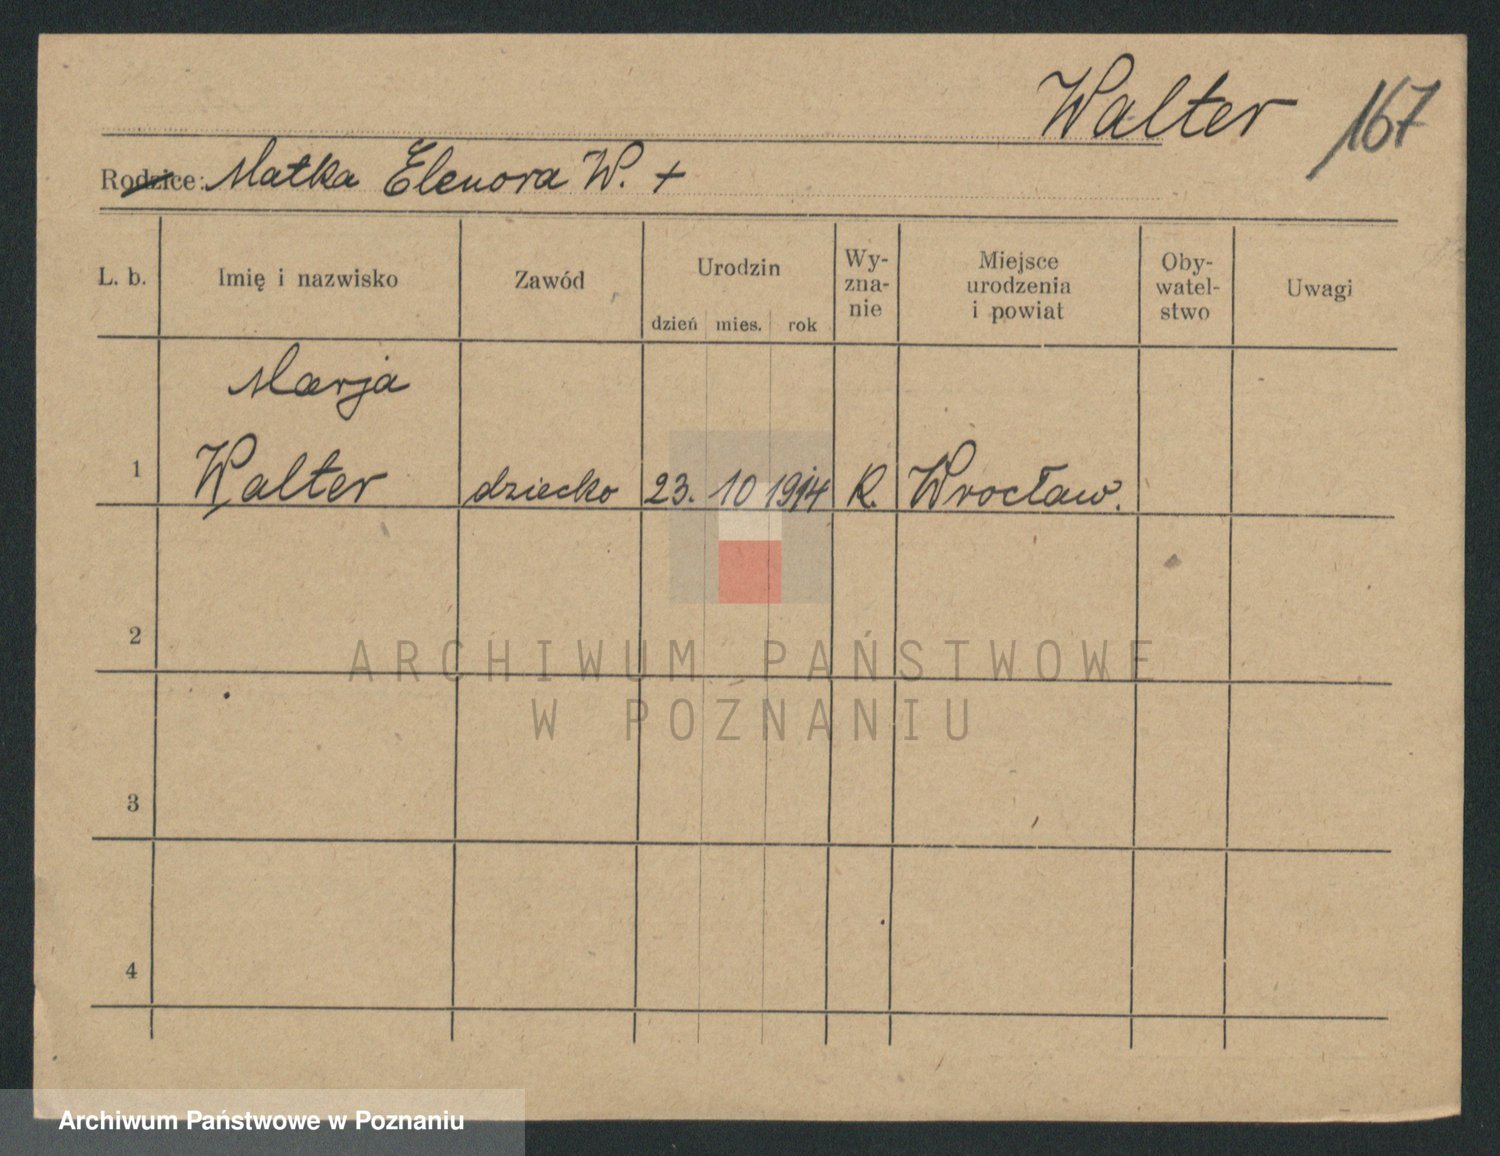 Walter 167
Rodzice: Matka Elenora W. +
L. b. Imię i nazwisko Zawód Urodzin dzień mies. rok Wy-zna-nie Miejsce urodzenia i powiat Oby-watel-stwo Uwagi
Marja
1 Walter dziecko 23. 10 1914 R. Wrocław.
2
ARCHIWUM PAŃSTWOWE
W POZNANIU
3
4
Archiwum Państwowe w Poznaniu